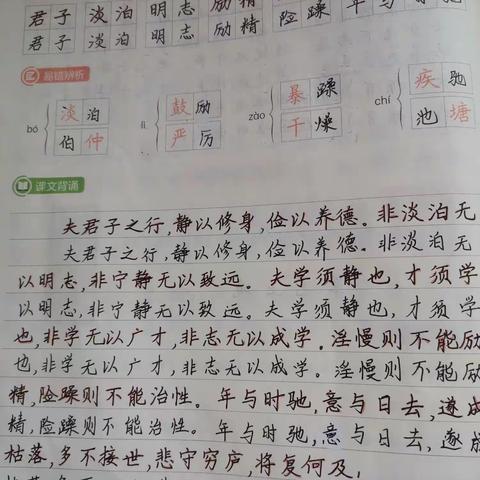 君子 淡泊 明志 励精 险躁 年与时驰
君子 淡泊 明志 励精 险躁
易错辨析
bó 淡泊 伯仲 lì 鼓励 严厉 zào 暴躁 干燥 chí 疾驰 池塘
课文背诵
夫君子之行,静以修身,俭以养德。非淡泊无
夫君子之行,静以修身,俭以养德。非淡泊无
以明志,非宁静无以致远。夫学须静也,才须学
以明志,非宁静无以致远。夫学须静也,才须学
也,非学无以广才,非志无以成学。淫慢则不能励
也,非学无以广才,非志无以成学。淫慢则不能励
精,险躁则不能治性。年与时驰,意与日去,遂成
精,险躁则不能治性。年与时驰,意与日去,遂成
枯落,多不接世,悲守穷庐,将复何及!